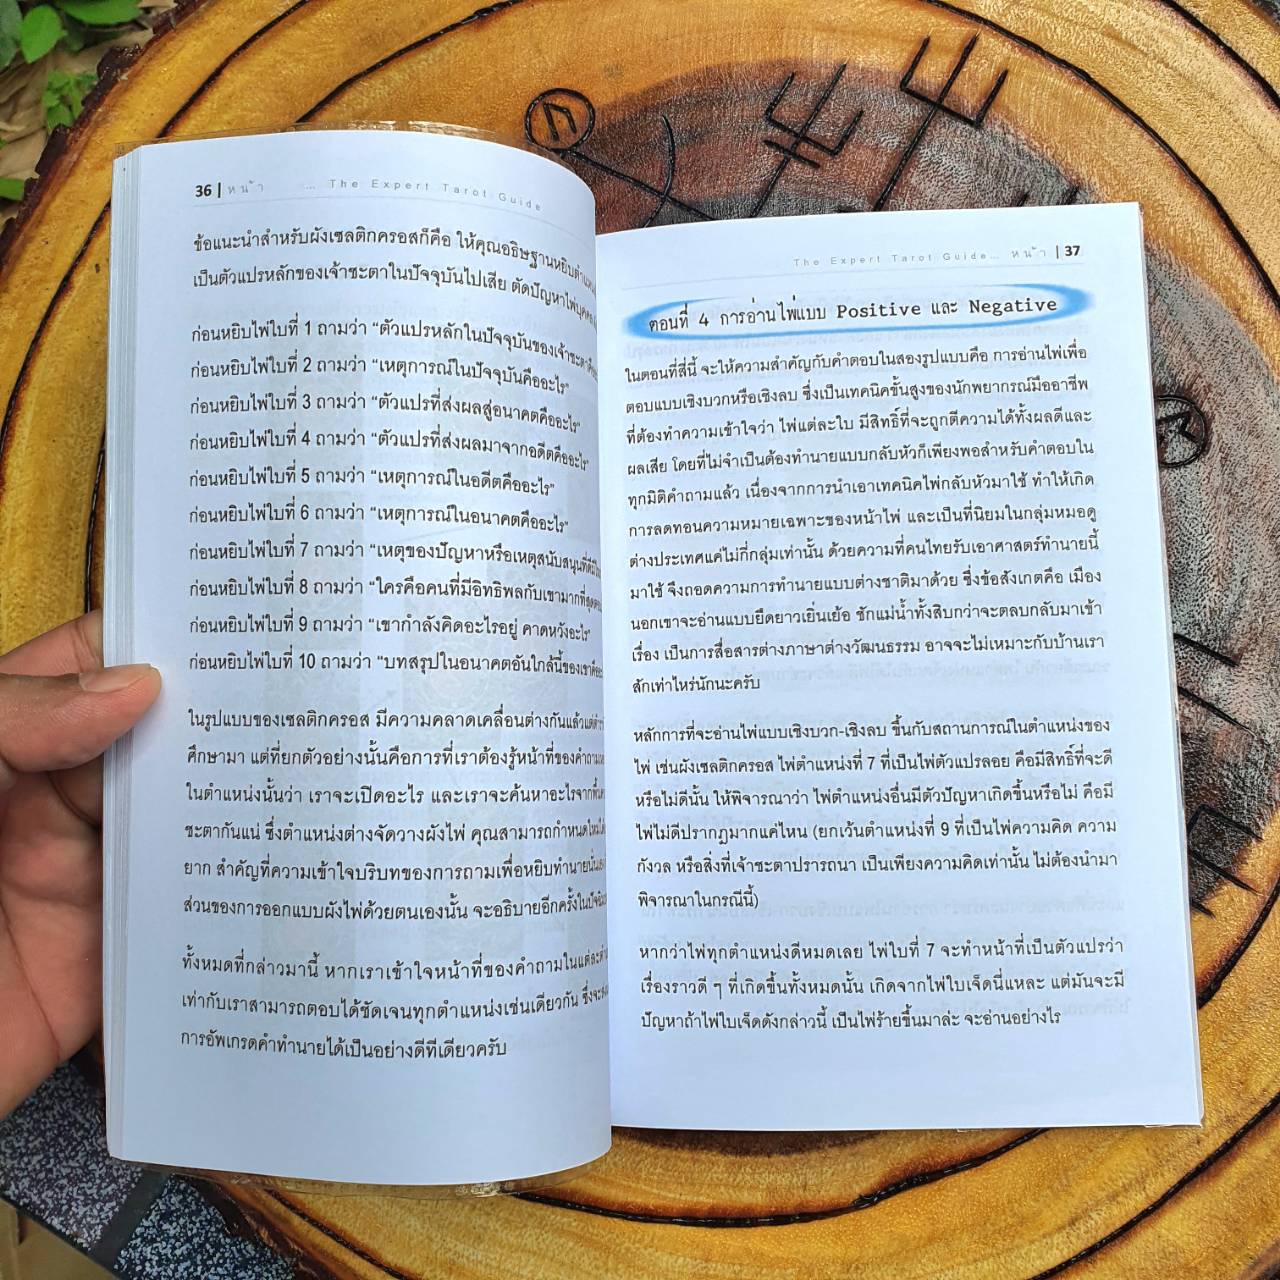 36 | หน้า ... The Expert Tarot Guide
ข้อแนะนำสำหรับผังเซลติกครอสก็คือ ให้คุณอธิษฐานหยิบตำแหน่ง
เป็นตัวแปรหลักของเจ้าชะตาในปัจจุบันไปเสีย ตัดปัญหาไพ่บุคคล
ก่อนหยิบไพ่ใบที่ 1 ถามว่า “ตัวแปรหลักในปัจจุบันของเจ้าชะตาคือ
ก่อนหยิบไพ่ใบที่ 2 ถามว่า “เหตุการณ์ในปัจจุบันคืออะไร”
ก่อนหยิบไพ่ใบที่ 3 ถามว่า “ตัวแปรที่ส่งผลสู่อนาคตคืออะไร”
ก่อนหยิบไพ่ใบที่ 4 ถามว่า “ตัวแปรที่ส่งผลมาจากอดีตคืออะไร”
ก่อนหยิบไพ่ใบที่ 5 ถามว่า “เหตุการณ์ในอดีตคืออะไร”
ก่อนหยิบไพ่ใบที่ 6 ถามว่า “เหตุการณ์ในอนาคตคืออะไร”
ก่อนหยิบไพ่ใบที่ 7 ถามว่า “เหตุของปัญหาหรือเหตุสนับสนุนที่ดี
ก่อนหยิบไพ่ใบที่ 8 ถามว่า “ใครคือคนที่มีอิทธิพลกับเขามากที่สุด
ก่อนหยิบไพ่ใบที่ 9 ถามว่า “เขากำลังคิดอะไรอยู่ คาดหวังอะไร”
ก่อนหยิบไพ่ใบที่ 10 ถามว่า “บทสรุปในอนาคตอันใกล้นี้ของเขาคือ
ในรูปแบบของเซลติกครอส มีความคลาดเคลื่อนต่างกันแล้วแต่ตำรา
ศึกษามา แต่ที่ยกตัวอย่างนั้นคือการที่เราต้องรู้หน้าที่ของคำถาม
ในตำแหน่งนั้นว่า เราจะเปิดอะไร และเราจะค้นหาอะไรจากพื้น
ชะตากันแน่ ซึ่งตำแหน่งต่างจัดวางผังไพ่ คุณสามารถกำหนดใหม่ได้
ยาก สำคัญที่ความเข้าใจบริบทของการถามเพื่อหยิบทำนายนั่น
ส่วนของการออกแบบผังไพ่ด้วยตนเองนั้น จะอธิบายอีกครั้งใน
ทั้งหมดที่กล่าวมานี้ หากเราเข้าใจหน้าที่ของคำถามในแต่ละ
เท่ากับเราสามารถตอบได้ชัดเจนทุกตำแหน่งเช่นเดียวกัน ซึ่งจะ
การอัพเกรดคำทำนายได้เป็นอย่างดีทีเดียวครับ
The Expert Tarot Guide... หน้า | 37
ตอนที่ 4 การอ่านไพ่แบบ Positive และ Negative
ในตอนที่สี่นี้ จะให้ความสำคัญกับคำตอบในสองรูปแบบคือ การอ่านไพ่เพื่อ
ตอบแบบเชิงบวกหรือเชิงลบ ซึ่งเป็นเทคนิคขั้นสูงของนักพยากรณ์มืออาชีพ
ที่ต้องทำความเข้าใจว่า ไพ่แต่ละใบ มีสิทธิ์ที่จะถูกตีความได้ทั้งผลดีและ
ผลเสีย โดยที่ไม่จำเป็นต้องทำนายแบบกลับหัวก็เพียงพอสำหรับคำตอบใน
ทุกมิติคำถามแล้ว เนื่องจากการนำเอาเทคนิคไพ่กลับหัวมาใช้ ทำให้เกิด
การลดทอนความหมายเฉพาะของหน้าไพ่ และเป็นที่นิยมในกลุ่มหมอดู
ต่างประเทศแค่ไม่กี่กลุ่มเท่านั้น ด้วยความที่คนไทยรับเอาศาสตร์ทำนายนี้
มาใช้ จึงถอดความการทำนายแบบต่างชาติมาด้วย ซึ่งข้อสังเกตคือ เมือง
นอกเขาจะอ่านแบบยืดยาวเยิ่นเย้อ ชักแม่น้ำทั้งสิบกว่าจะตลบกลับมาเข้า
เรื่อง เป็นการสื่อสารต่างภาษาต่างวัฒนธรรม อาจจะไม่เหมาะกับบ้านเรา
สักเท่าไหร่นักนะครับ
หลักการที่จะอ่านไพ่แบบเชิงบวก-เชิงลบ ขึ้นกับสถานการณ์ในตำแหน่งของ
ไพ่ เช่นผังเซลติกครอส ไพ่ตำแหน่งที่ 7 ที่เป็นไพ่ตัวแปรลอย คือมีสิทธิ์ที่จะดี
หรือไม่ดีนั้น ให้พิจารณาว่า ไพ่ตำแหน่งอื่นมีตัวปัญหาเกิดขึ้นหรือไม่ คือมี
ไพ่ไม่ดีปรากฏมากแค่ไหน (ยกเว้นตำแหน่งที่ 9 ที่เป็นไพ่ความคิด ความ
กังวล หรือสิ่งที่เจ้าชะตาปรารถนา เป็นเพียงความคิดเท่านั้น ไม่ต้องนำมา
พิจารณาในกรณีนี้)
หากว่าไพ่ทุกตำแหน่งดีหมดเลย ไพ่ใบที่ 7 จะทำหน้าที่เป็นตัวแปรว่า
เรื่องราวดี ๆ ที่เกิดขึ้นทั้งหมดนั้น เกิดจากไพ่ใบเจ็ดนี่แหละ แต่มันจะมี
ปัญหาถ้าไพ่ใบเจ็ดดังกล่าวนี้ เป็นไพ่ร้ายขึ้นมาล่ะ จะอ่านอย่างไร